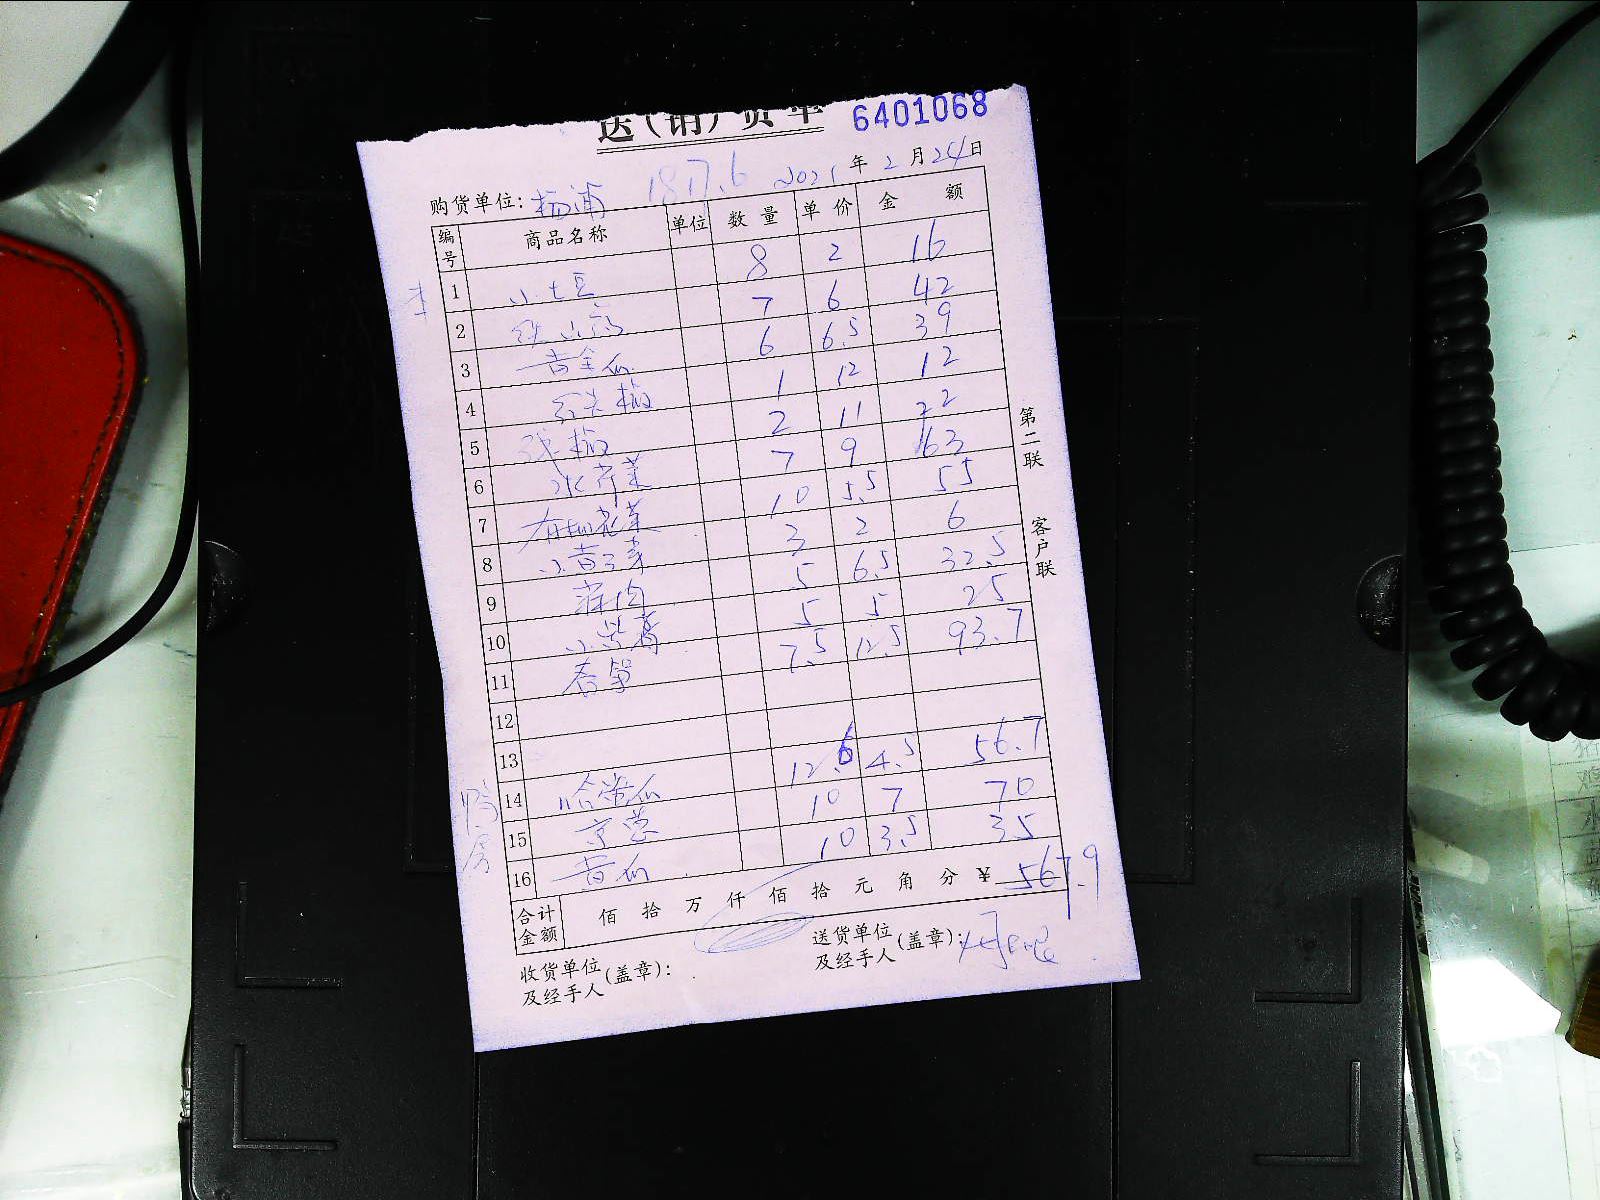 送(销)货单 6401068
购货单位: 杨浦 1817.6 2021年2月24日
编号 商品名称 单位 数量 单价 金额
1 小土豆 8 2 16
2 铁山药 7 6 42
3 黄金瓜 6 6.5 39
4 红尖椒 1 12 12
5 线椒 2 11 22
6 水芹菜 7 9 63
7 有机花菜 10 5.5 55
8 小青菜 3 2 6
9 蒜肉 5 6.5 32.5
10 小紫薯 5 5 25
11 春笋 7.5 12.5 93.7
12
13
14 哈密瓜 12.6 4.5 56.7
15 京葱 10 7 70
16 黄瓜 10 3.5 35
合计金额 佰拾万仟佰拾元角分¥ 567.9
收货单位及经手人(盖章): 送货单位及经手人(盖章):
第二联 客户联